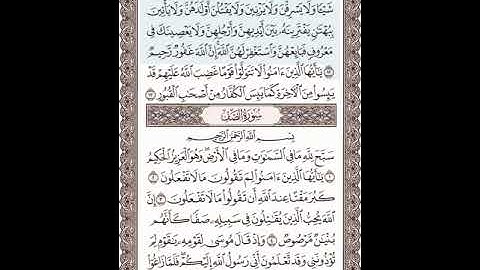 شَيْـًٔا وَلَا يَسْرِقْنَ وَلَا يَزْنِينَ وَلَا يَقْتُلْنَ أَوْلَٰدَهُنَّ وَلَا يَأْتِينَ
بِبُهْتَٰنٍ يَفْتَرِينَهُۥ بَيْنَ أَيْدِيهِنَّ وَأَرْجُلِهِنَّ وَلَا يَعْصِينَكَ فِى
مَعْرُوفٍ فَبَايِعْهُنَّ وَٱسْتَغْفِرْ لَهُنَّ ٱللَّهَ إِنَّ ٱللَّهَ غَفُورٌ رَّحِيمٌ
١٢ يَٰٓأَيُّهَا ٱلَّذِينَ ءَامَنُوا۟ لَا تَتَوَلَّوْا۟ قَوْمًا غَضِبَ ٱللَّهُ عَلَيْهِمْ قَدْ
يَئِسُوا۟ مِنَ ٱلْـَٔاخِرَةِ كَمَا يَئِسَ ٱلْكُفَّارُ مِنْ أَصْحَٰبِ ٱلْقُبُورِ ١٣
سُورَةُ ٱلصَّفِّ
بِسْمِ ٱللَّهِ ٱلرَّحْمَٰنِ ٱلرَّحِيمِ
سَبَّحَ لِلَّهِ مَا فِى ٱلسَّمَٰوَٰتِ وَمَا فِى ٱلْأَرْضِ وَهُوَ ٱلْعَزِيزُ ٱلْحَكِيمُ
١ يَٰٓأَيُّهَا ٱلَّذِينَ ءَامَنُوا۟ لِمَ تَقُولُونَ مَا لَا تَفْعَلُونَ ٢
كَبُرَ مَقْتًا عِندَ ٱللَّهِ أَن تَقُولُوا۟ مَا لَا تَفْعَلُونَ ٣ إِنَّ
ٱللَّهَ يُحِبُّ ٱلَّذِينَ يُقَٰتِلُونَ فِى سَبِيلِهِۦ صَفًّا كَأَنَّهُم
بُنْيَٰنٌ مَّرْصُوصٌ ٤ وَإِذْ قَالَ مُوسَىٰ لِقَوْمِهِۦ يَٰقَوْمِ لِمَ
تُؤْذُونَنِى وَقَد تَّعْلَمُونَ أَنِّى رَسُولُ ٱللَّهِ إِلَيْكُمْ فَلَمَّا زَاغُوٓا۟